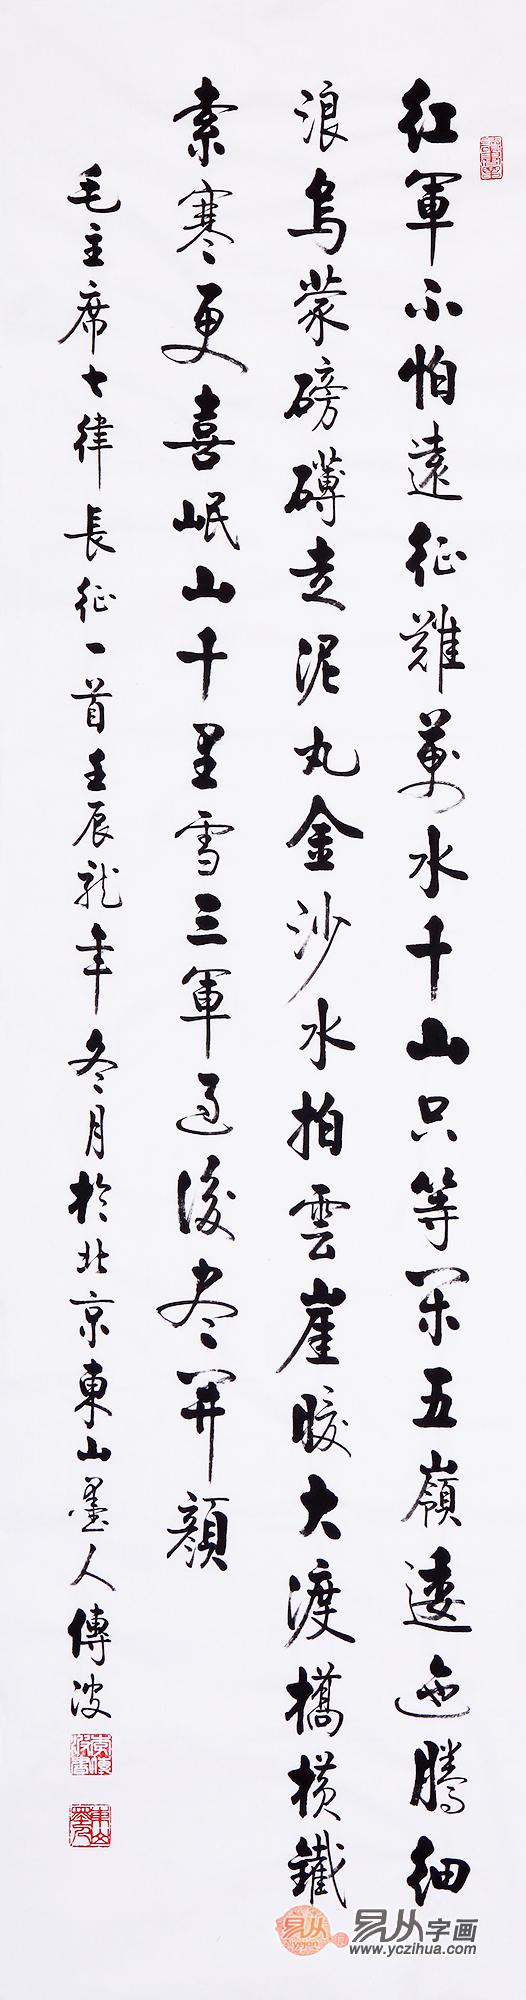 红軍不怕遠征難萬水千山只等闲五嶺逶迤騰细
浪烏蒙磅礴走泥丸金沙水拍雲崖暖大渡橋横鐵
索寒更喜岷山千里雪三軍过後尽开颜
毛主席七律長征一首壬辰龙年冬月於北京東山墨人傅波
東山墨人
易从
yejon
易从字画
www.yczihua.com